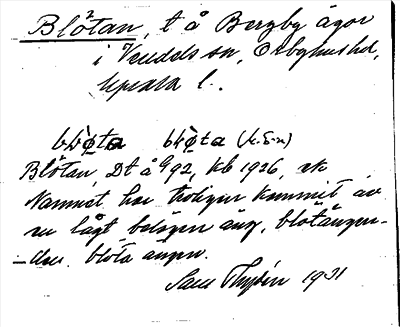 Blötan, t å Bergby ägor
i Vendels sn, Örbyhus hd,
Upsala l.
Blötan, Dt å 992, kb 1926, ek
Namnet har troligen kommit av
en lågt belägen äng, blötängen-
den blöta ängen.
1931